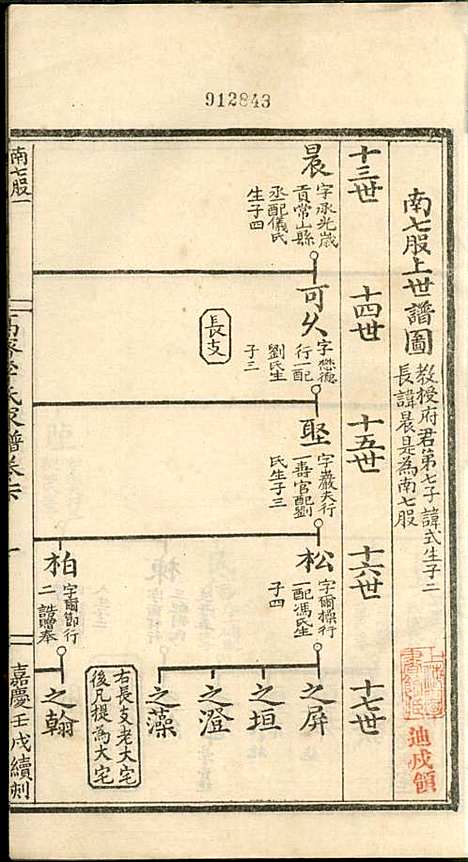 912843
南七股上世譜圖
教授府君第七子諱式生子二
長諱晨是為南七股
迪戌領
十三世
十四世
十五世
十六世
十七世
晨
字承光歲
貢常山縣
丞配儀氏
生子四
可久
字懋德
行一配
劉氏生
子三
長支
坚
字巖夫行
一壽官配劉
氏生子三
松
字爾操行
一配馮氏生
子四
柏
字爾節行
二誥贈奉
之屏
之垣
之澄
之藻
之翰
右長支老大宅
後凡提為大宅
南七股一
氏家譜卷六
嘉慶壬戌續刻